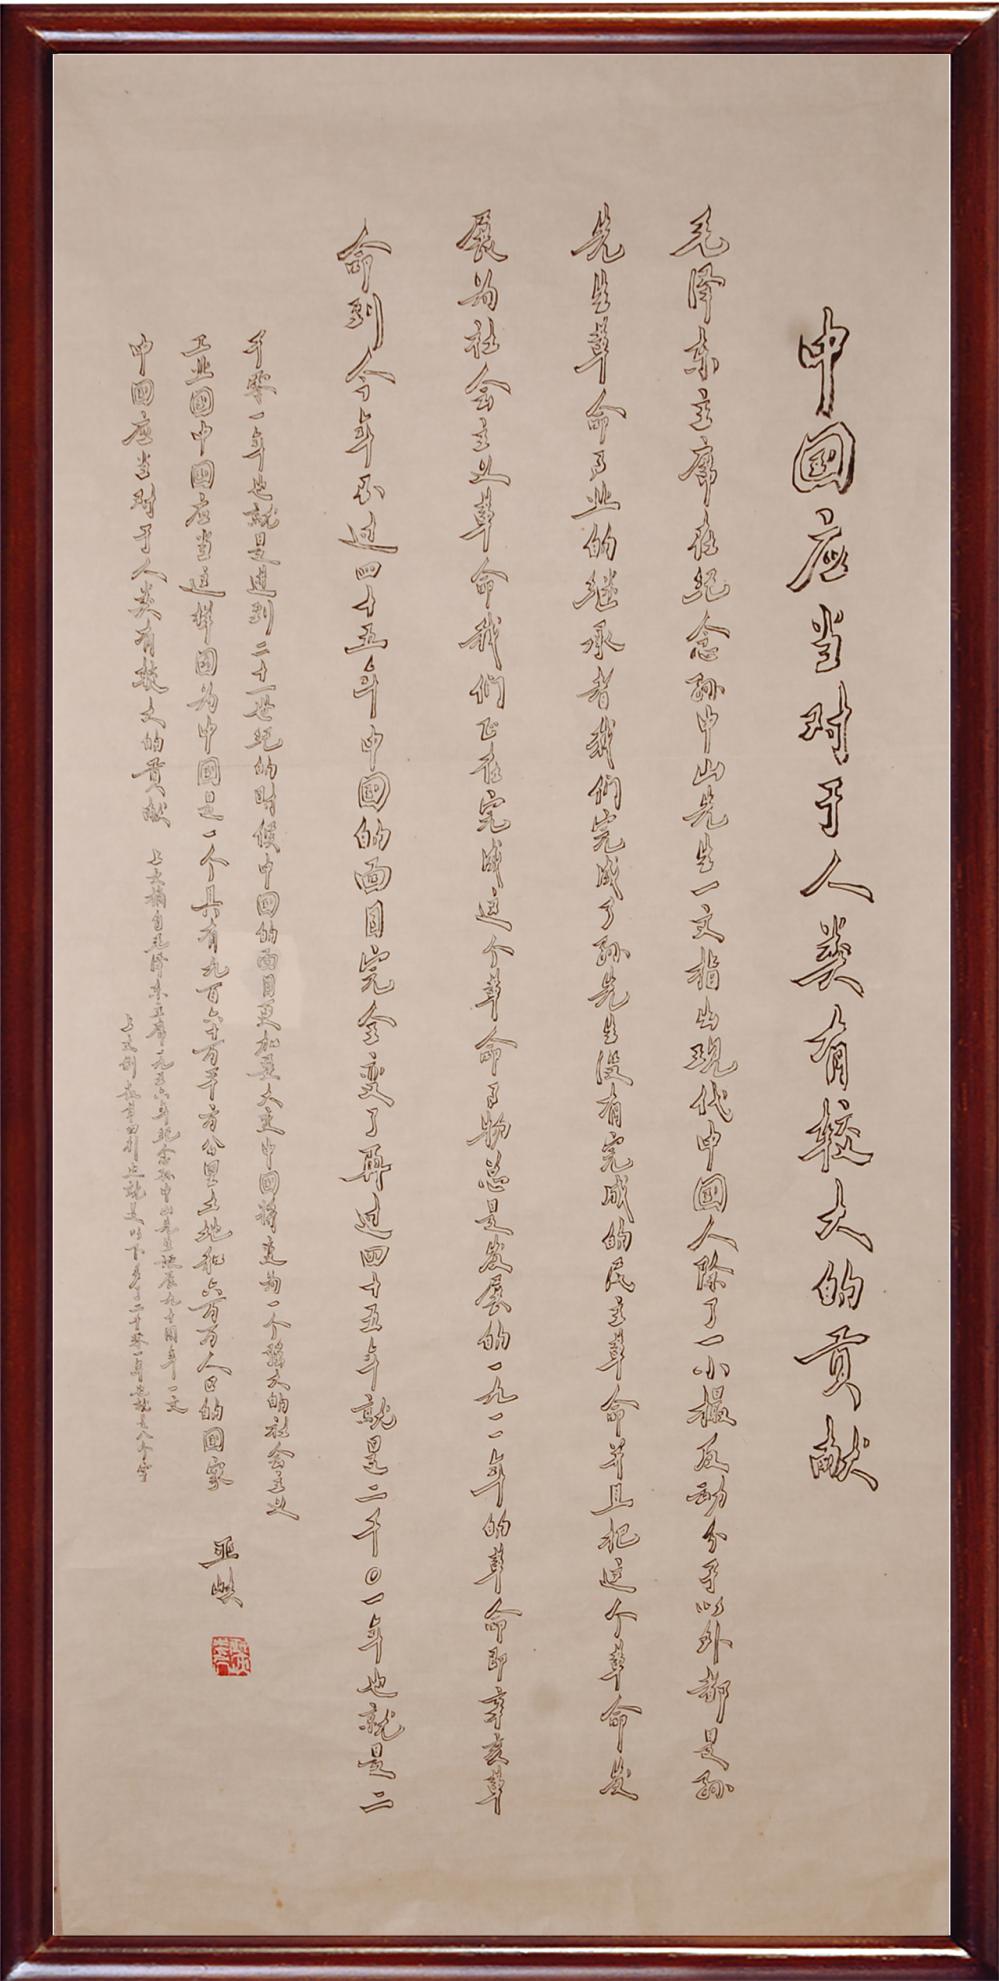 中國应当对于人类有较大的贡献
毛泽东主席在纪念孙中山先生一文指出现代中國人除了一小撮反动分子以外都是孙
先生革命事业的继承者我们完成了孙先生没有完成的民主革命并且把这个革命发
展为社会主义革命我们正在完成这个革命事物总是发展的一九一一年的革命即辛亥革
命到今年不过四十五年中國的面目完全变了再过四十五年就是二千〇一年也就是二
千零一年也就是进到二十一世纪的时候中国的面目更加要大变中國将变为一个强大的社会主义
工业國中國应当这样國为中國是一个具有九百六十万平方公里土地和六万万人口的國家
中國应当对于人类有较大的贡献
上文摘自毛泽东主席一九五六年纪念孙中山先生诞辰九十周年一文
亚